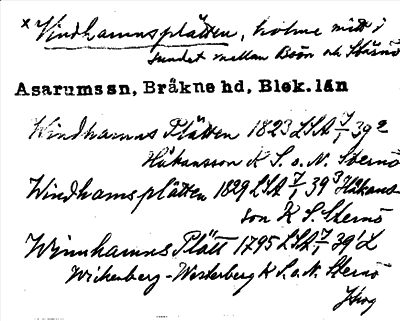 x Vindhamnsplätten, holme mitt i
sundet mellan Boön och Stärnö
Asarumssn, Bråkne hd, Blek. län
Windhamns Plätten 1823 LSA 7/1 39 2
Håkansson K S. o. N. Sternö
Windhamsplätten 1829 LSA 7/1 39 3 Håkans
son K S. Sternö
Winnhamns Plätt 1795 LSA 7/1 39 1 L
Wickenberg-Westerberg K S. o. N. Sternö